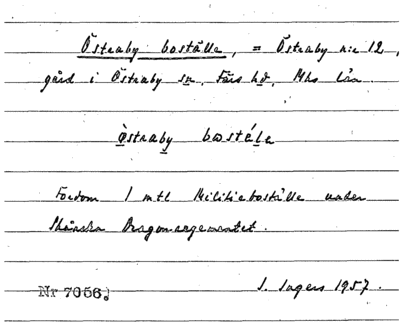 Östraby boställe, = Östraby n:r 12,
gård i Östraby sn, Färs hd, Mhs län.
östraby bostéle
Fordom 1 mtl Militieboställe under
Skånska Dragonregementet.
Nr 7056. I. Ingers 1957.